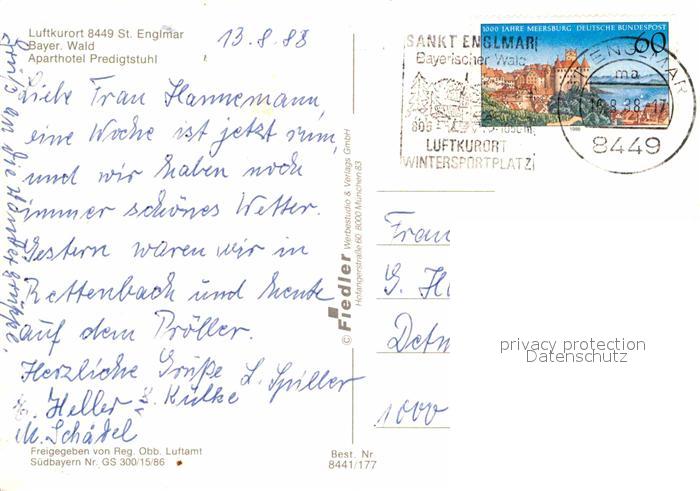 Luftkurort 8449 St. Englmar
Bayer. Wald
Aparthotel Predigtstuhl
13.8.88
Liebe Frau Hannemann,
eine Woche ist jetzt rum,
und wir haben noch
immer schönes Wetter.
Gestern waren wir in
Rettenbach und heute
auf dem Pröller.
Herzliche Grüße L. Spiller
Heller
Külke
M. Schädel
Gruß an die Wandergruppe.
Freigegeben von Reg. Obb. Luftamt
Südbayern Nr. GS 300/15/86
Best. Nr
8441/177
© Fiedler Werbestudio & Verlags GmbH
Hofangerstraße 60 8000 München 83
SANKT ENGLMAR
Bayerischer Wald
LUFTKURORT
WINTERSPORTPLATZ
1000 JAHRE MEERSBURG DEUTSCHE BUNDESPOST
60
ENGLMAR
ma
8449
Frau
G. H
Detm
1000
privacy protection
Datenschutz